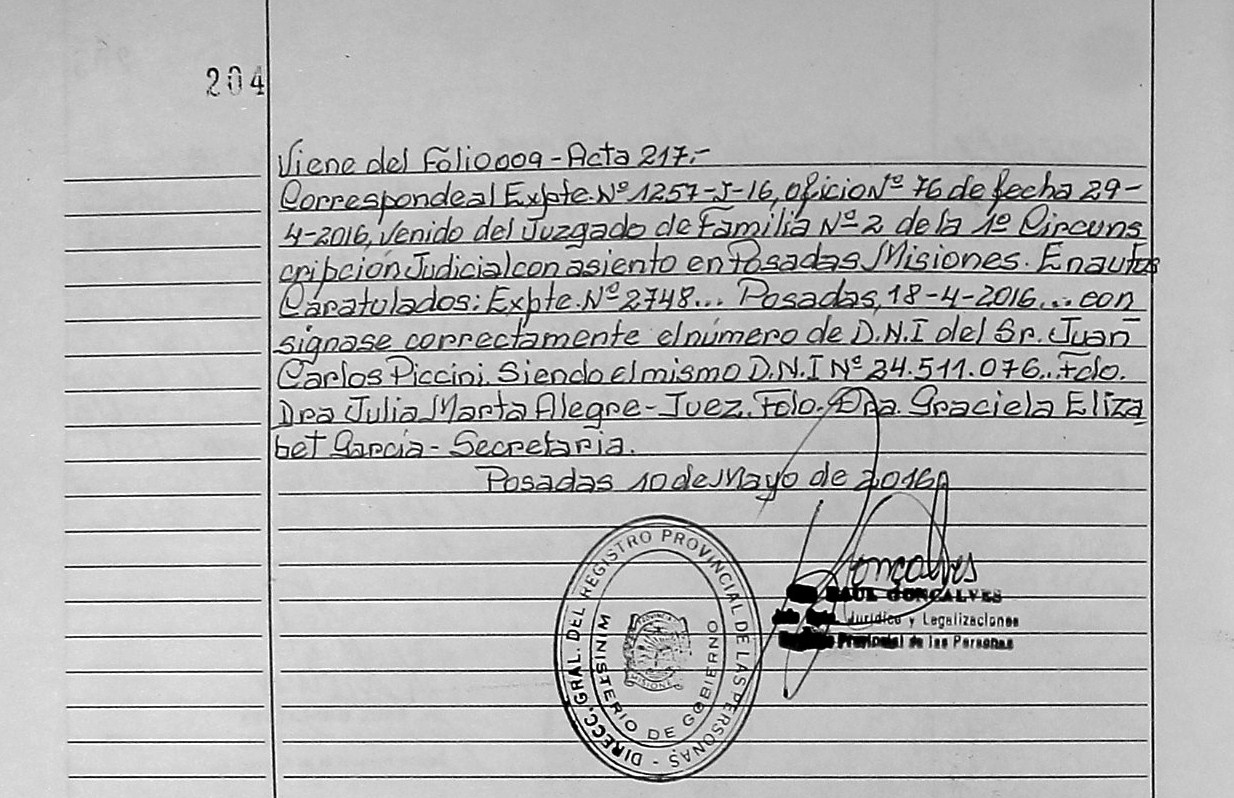 204
Viene del Folio 009 - Acta 217.-
Corresponde al Expte. Nº 1257-J-16, oficio Nº 76 de fecha 29-
4-2016, Venido del Juzgado de Familia Nº 2 de la 1º Circuns
cripción Judicial con asiento en Posadas Misiones. En autos
Caratulados: Expte. Nº 2748... Posadas, 18-4-2016... con
signase correctamente el número de D.N.I del Sr. Juan
Carlos Piccini. Siendo el mismo D.N.I Nº 24.511.076... Fdo.
Dra Julia Marta Alegre - Juez. Fdo. Dra. Graciela Eliza
bet García - Secretaria.
Posadas 10 de Mayo de 2016
Gonçalves
RAUL GONCALVES
Jurídico y Legalizaciones
Provincial de las Personas
DIRECC. GRAL. DEL REGISTRO PROVINCIAL DE LAS PERSONAS -
MINISTERIO DE GOBIERNO
MISIONES